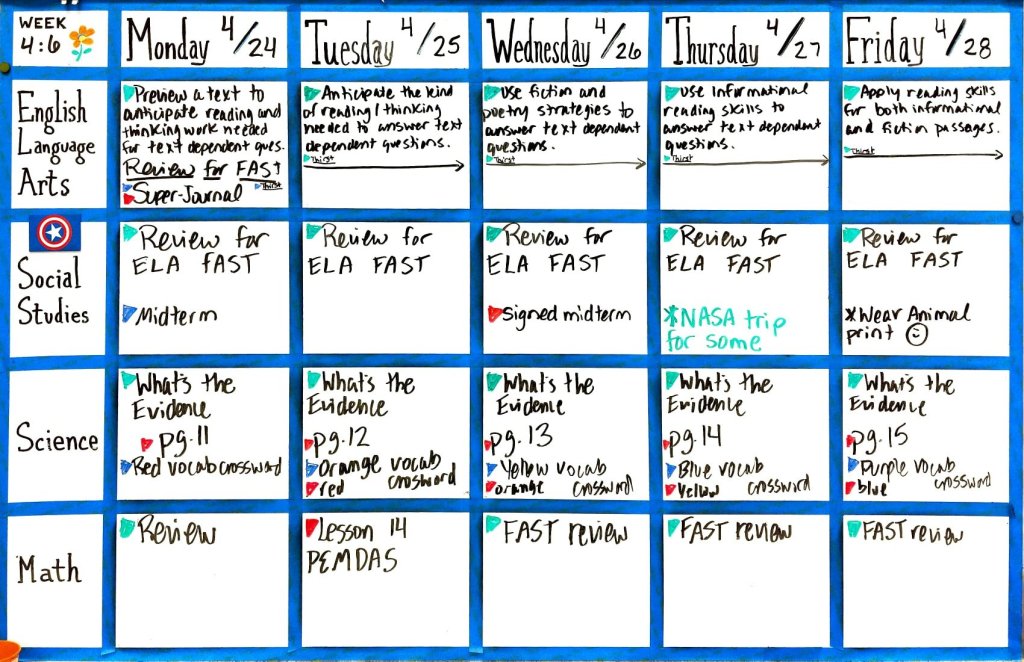 WEEK
4:6
Monday 4/24
Tuesday 4/25
Wednesday 4/26
Thursday 4/27
Friday 4/28
English
Language
Arts
Preview a text to
anticipate reading and
thinking work needed
for text dependent ques.
Review for FAST
Thirst
Super-Journal
Anticipate the kind
of reading/thinking
needed to answer text
dependent questions.
Thirst
Use fiction and
poetry strategies to
answer text dependent
questions.
Thirst
Use Informational
reading skills to
answer text dependent
questions.
Thirst
Apply reading skills
for both informational
and fiction passages.
Thirst
Social
Studies
Review for
ELA FAST
Midterm
Review for
ELA FAST
Review for
ELA FAST
Signed midterm
Review for
ELA FAST
*NASA trip
for some
Review for
ELA FAST
*Wear Animal
print
Science
What's the
Evidence
pg. 11
Red vocab crossword
What's the
Evidence
pg. 12
Orange vocab
red crossword
What's the
Evidence
pg. 13
Yellow vocab
orange crossword
What's the
Evidence
pg. 14
Blue vocab
Yellow crossword
What's the
Evidence
pg. 15
Purple vocab
blue crossword
Math
Review
Lesson 14
PEMDAS
FAST review
FAST review
FAST review